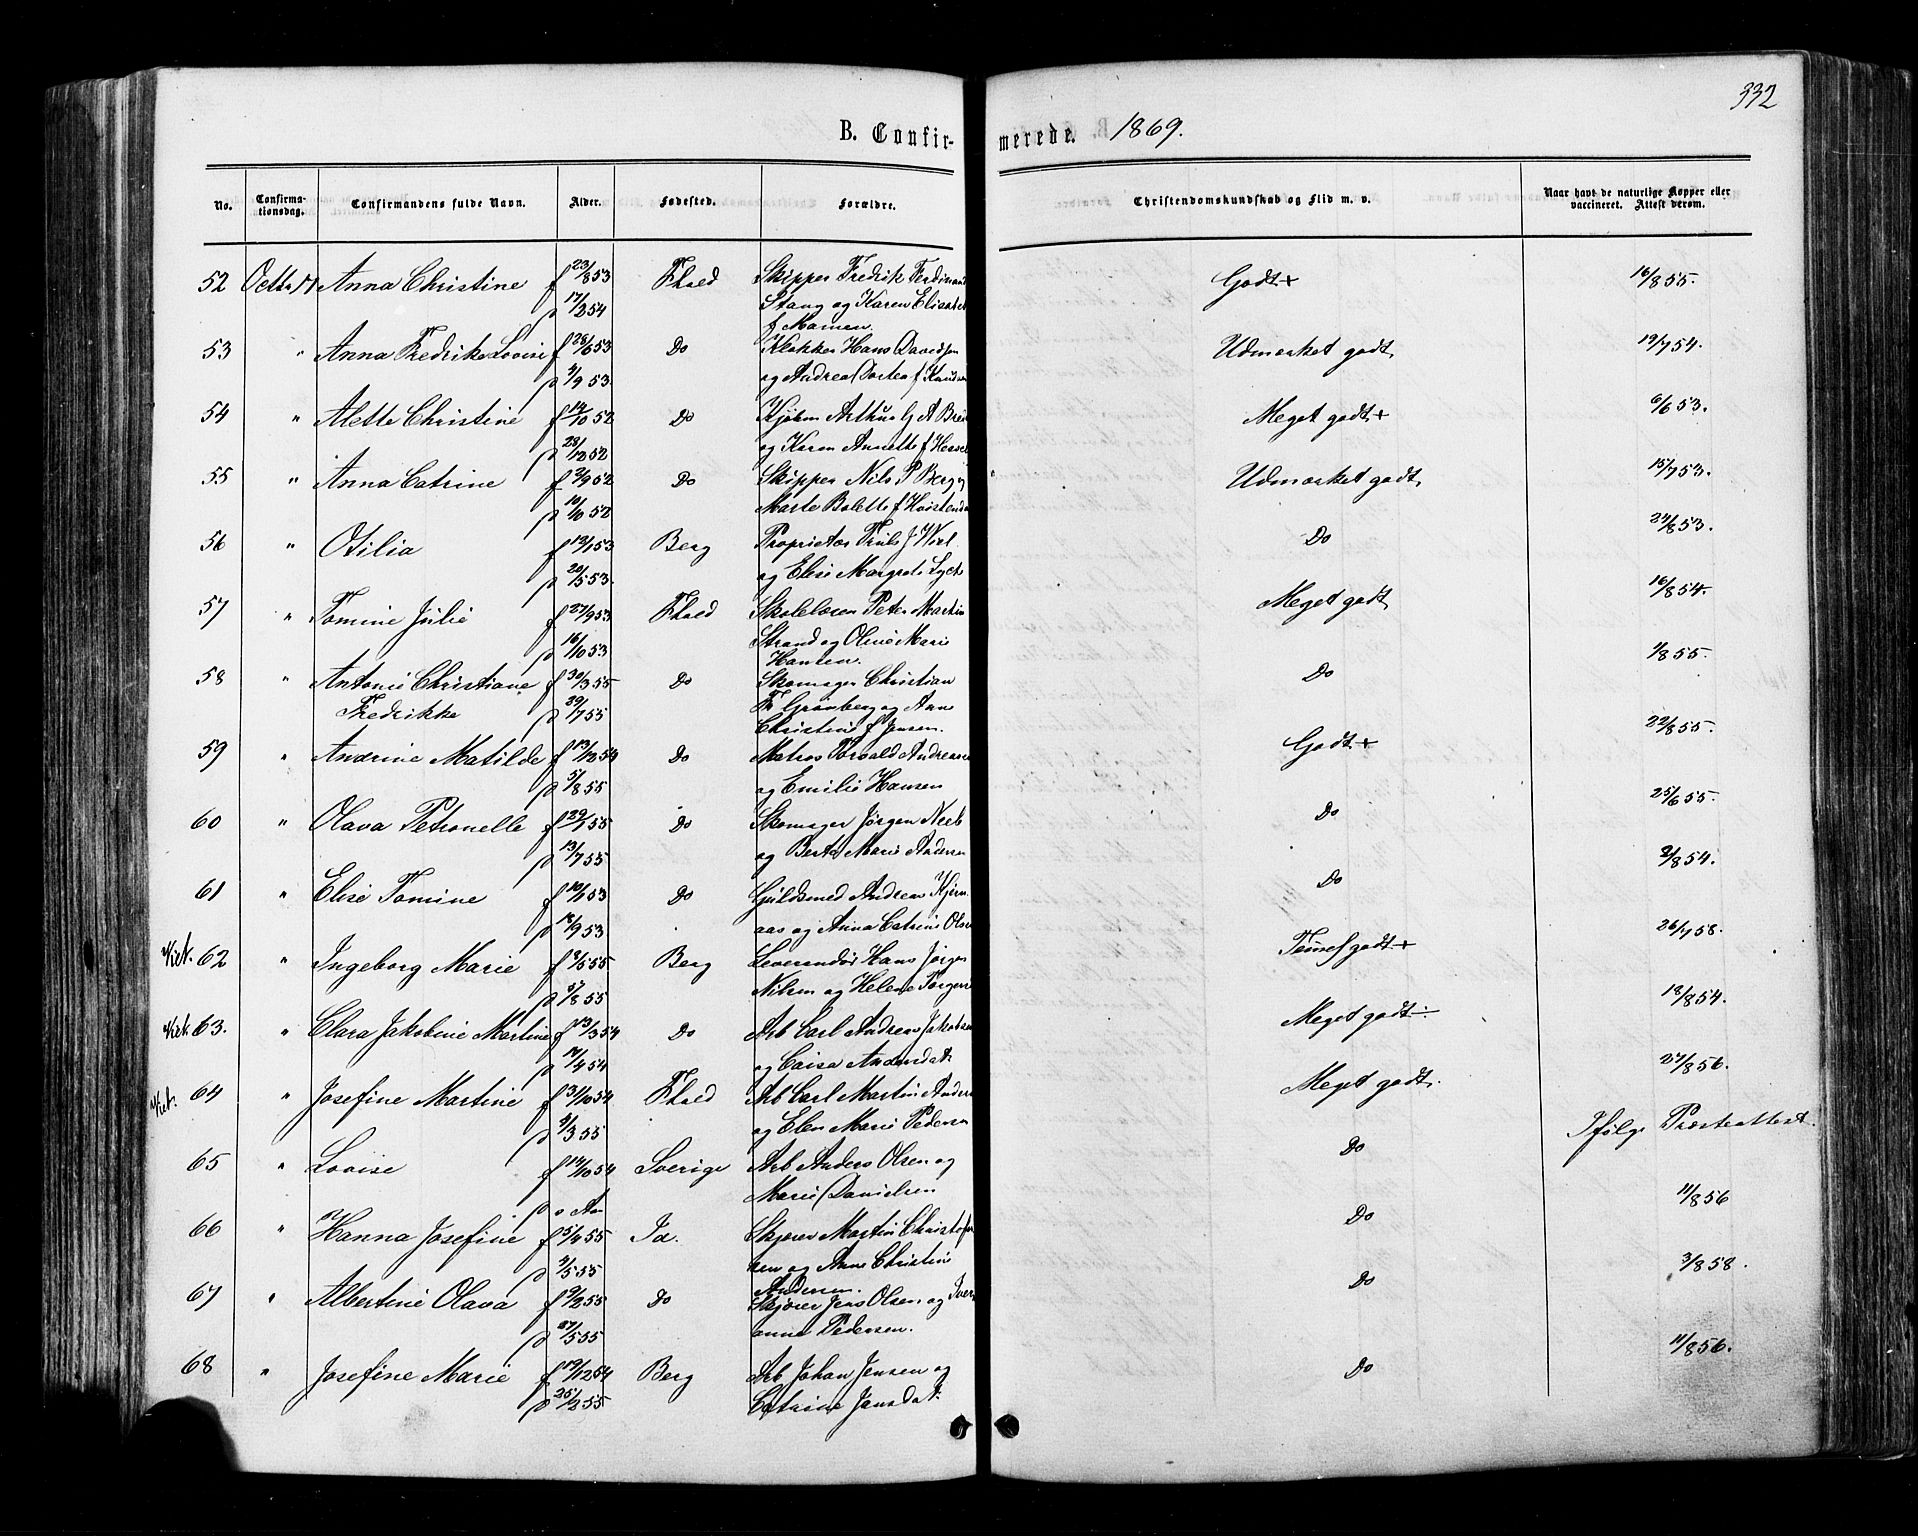 332
B. Confirmerede. 1869.
No. Confirmationsdag. Confirmandens fulde Navn. Alder. Fødested. Forældre. Christendomskundskab og Flid m. v. Naar havt de naturlige Kopper eller vaccineret. Attest derom.
52 Octbr 17 Anna Christine f 23/8 53 Fhald Skipper Fredrik Ferdinand Godt+ 16/8 55.
17/2 54 Stang og Karen Elisabet
f Mamen.
53 " Anna Fredrikke Lovise f 28/6 53 Do Klokker Hans Davidsen Udmærket godt, 19/7 54.
p 4/9 53. og Andrea Dortea f Knudsen
54 " Alette Christine f 14/10 52 Do Kjøbm Arthur G A Meget godt+ 6/6 53.
p 28/12 52 og Karen Annette f
55 " Anna Catrine f 2/9 52 Do Skipper Nils P Berg og Udmærket godt, 15/7 53.
p 10/10 52 Marte Bolette f
56 " Otilia f 13/1 53 Berg Proprietær Truls J Wiel Do 24/8 53.
p 20/5 53. og Elise Margrete
57 " Tomine Julie f 27/9 53 Fhald Skolelærer Peter Martin Meget godt, 16/8 54.
p 16/10 53 Strand og Oline Marie
Hansen.
58 " Antonie Christiane f 30/3 55 Do Skomager Christian Do 1/8 55.
Fredrikke p 29/7 55 Fr Grønberg og Ane
Christine f Jensen.
59 " Andrine Matilde f 13/12 54 Do Matros Torvald Andreassen Godt+ 22/8 55.
p 5/8 55 og Emilie Hansen
60 " Olava Petronelle f 29/1 55 Do Skomager Jørgen Do 25/6 55.
p 13/7 55 og Berte Marie Andersen
61 " Elise Tomine f 10/1 53 Do Guldsmed Andreas Do 2/8 54.
p 18/9 53 aas og Anna Catrine Olsen
62 " Ingeborg Marie f 2/5 55 Berg Leverendør Hans Jørgen Temmel godt+ 26/7 58.
p 5/8 55 Nilsen og Helene
63. " Clara Jakobine Martine f 13/3 54 Do Arb Carl Andreas Jakobsen Meget godt÷ 18/8 54.
p 17/4 54 og Caisa Andersdat
64 " Josefine Martine f 31/10 54 Fhald Arb Carl Martin Andersen Meget godt. 27/8 56.
p 4/3 55 og Elen Marie Pedersen
65 " Lovise f 14/10 54 Sverige Arb Anders Olsen og Do Ifølge Præsteattest.
p s. Aar Marie Danielsen
66 " Hanna Josefine f 5/4 55 Id. Skjører Martin Christofer Do 11/8 56
p 4/5 55 sen og Anne Christine
Andersen.
67 " Albertine Olava f 9/2 55 Do Skjører Jens Olsen og Do 3/8 58.
p 27/5 55 anna Pedersen.
68 " Josefine Marie f 19/12 54 Berg Arb Johan Jensen og Do 11/8 56.
p 25/2 55 Catrine Jansdat.